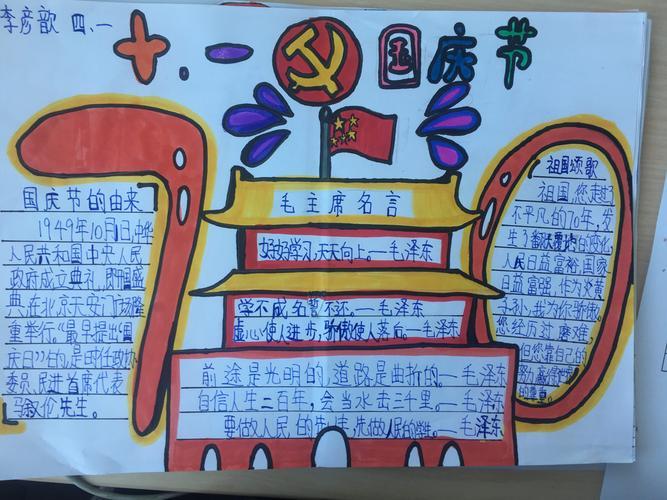 李彦歆 四、一
十.一 国庆节
国庆节的由来
1949年10月1日,中华
人民共和国中央人民
政府成立典礼,即开国盛
典,在北京天安门广场隆
重举行。“最早提出‘国
庆日’”的,是时任政协
委员,民进首席代表
马叙伦先生。
毛主席名言
好好学习,天天向上。—毛泽东
学不成名誓不还。—毛泽东
虚心使人进步,骄傲使人落后。—毛泽东
前途是光明的,道路是曲折的。—毛泽东
自信人生二百年,会当水击三千里。—毛泽东
要做人民的先生,先做人民的学生。—毛泽东
祖国颂歌
祖国,您走过
不平凡的70年,发
生了翻天覆地的变化,
人民日益富裕,国家
日益富强,作为炎黄
子孙,我为你骄傲。
您经历过磨难,
但您靠自己的
努力,赢得世界
的尊重。